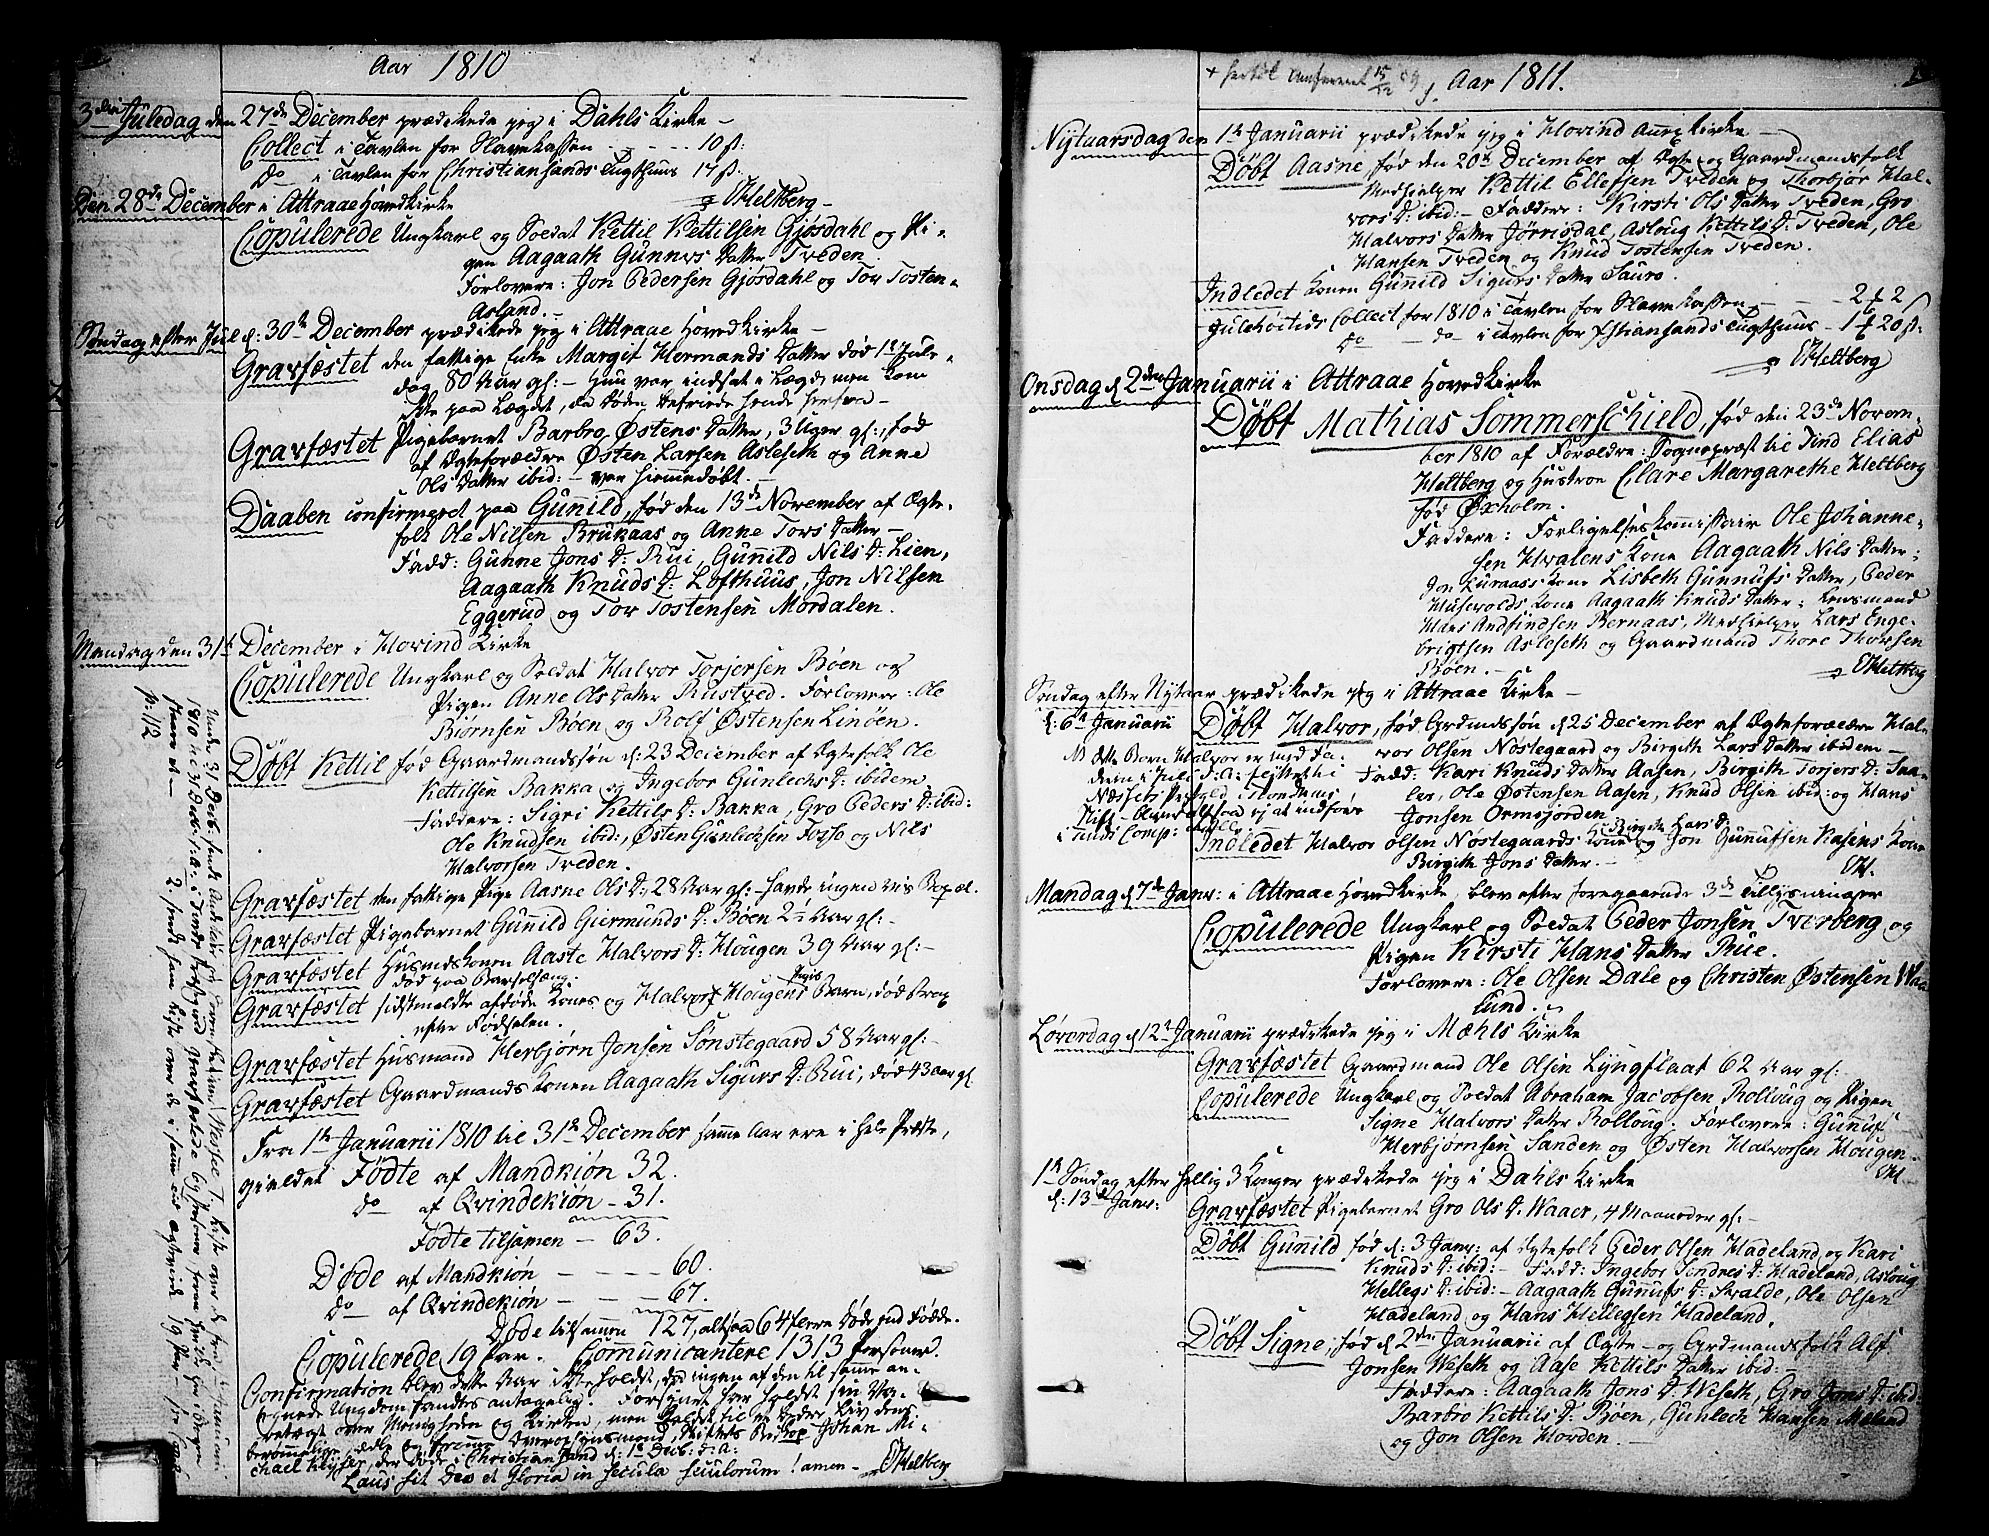 Aar 1810
3die Juledag den 27de December prædikede jeg i Dahls Kirke –
Collect i Tavlen for Slavekassen – – – – 10 ß:
do – i Tavlen for Christiansands Tugthuus 14 ß.
HMeltberg –
Den 28de December i Attraae Hovedkirke
Copulerede Ungkarl og Soldat Kettil Kettilsen Gjøsdahl og Pi-
gen Aagaath Gunnvs Datter Tveden.
Forlovere: Jon Pedersen Gjøsdahl og Tor Tosten-
Asland. –
Søndag efter Juul d: 30te December prædikede jeg i Attraae Hovedkirke –
Gravfæstet den fattige Enke Margit Hermands Datter død 1te Jule-
dag, 80 Aar gl: – Hun var indsat i Lægd, men kom
ikke paa Lægdet, da Døden befriede hende herfra –
Gravfæstet Pigebarnet Barbro Østens Datter, 3 Uger gl:, fød
af Ægteforældre Østen Larsen Asleseth og Anne
Ols Datter ibid: – var hiemmedøbt. –
Daaben confirmeret paa Gunnild, fød den 13de November af Ægte-
folk Ole Nilsen Brukaas og Anne Tors Datter –
Fadd: Gunne Jons D: Rui, Gunnild Nils D: Lien,
Aagaath Knuds D: Lofthuus, Jon Nilsen
Eggerud og Tor Tostensen Mordalen.
Mandag den 31te December i Hovind Kirke
Copulerede Ungkarl og Soldat Halvor Torjersen Bøen og
Pigen Anne Ols Datter Rustved. Forlovere: Ole
Biørnsen Bøen og Rolf Østensen Linøen.
Døbt Kettil fød Gaardmandssøn d: 23 December af Ægtefolk Ole
Kettilsen Bakka og Ingebor Gunlechs D: ibidem
Faddere: Sigri Kettils D: Bakka, Gro Peders D: ibid:
Ole Knudsen ibid:, Østen Gunlechsen Fosso og Nils
Halvorsen Tveden.
Gravfæstet den fattige Pige Aasne Ols D: 28 Aar gl: – havde ingen vis Bopæl.
Gravfæstet Pigebarnet Gunnild Giermunds D: Bøen 2½ Aar gl: –
Gravfæstet Husmandskonen Aaste Halvors D: Hougen 39 Aar gl: –
død paa Barselseng.
Gravfæstet sidstmeldte afdøde Kones og Halvor Hougens Pige Barn, død strax
efter Fødselen.
Gravfæstet Husmand Herbjørn Jonsen Sønstegaard 58 Aar gl: –
Gravfæstet Gaardmands Konen Aagaath Sigurs D: Rui, død 43 aar gl.
Fra 1te Januarii 1810 til 31te December samme Aar ere i hele Præste-
gieldet Fødte af Mandkiøn 32.
do – af Qvindekiøn – 31.
Fødte tilsamen – 63.
Døde af Mandkiøn – – – – 60.
do – af Qvindekiøn – – – 67.
Døde tilsammen 127, altsaa 64 flere Døde end Fødde.
Copulerede 19 Par. Communicantere 1313 Personer.
Confirmation blev dette Aar ikke holdt, da ingen af den til samme an-
tegnede Ungdom fandtes antagelig. Forsynet har holdt sin Va-
retægt over Menigheden og Kirken, men kaldet til et bedre Liv dens
berømmelige, ædle og fromme Overopsynsmand, Stiftets Biskop Johan Mi-
chael Keyser, der døde i Christiansand d: 1te Decb: s: a:
Laus sit Deo et Gloria in secula seculorum! amen – HMeltberg
Under 31 Decb. sendt Andreas
1810 til 31 Decb: s: a: i Tinds Præstegield Gravfæstede
Hans et –
2 sendt ham Liste over de i samme Aar Ægteviede 19 Par –
p: 112
+ 15/12
Aar 1811.
Nytaarsdag den 1te Januarii prædikede jeg i Hovind Annexkirke –
Døbt Aasne, fød den 20de December af Ægte- og Gaardmandsfolk
Medhielper Kettil Ellefsen Tveden og Thorbjør Hal-
vors D: ibid: – Faddere: Kirsti Ols Datter Tveden, Gro
Halvors Datter Jørrisdal, Asloug Kettils D: Tveden, Ole
Hansen Tveden og Knud Tostensen Tveden.
Indledet Konen Gunild Sigurs Datter Sauro.
Julehøitids Collect for 1810 i Tavlen for Slavekassen – – – 2 ₰ 2
do – do – i Tavlen for Xstiansands Tugthuus – 1 ₰ 20 ß:
HMeltberg
Onsdag d 2den Januarii i Attraae Hovedkirke
Døbt Mathias Sommerschield, fød den 23de Novem-
ber 1810 af Forældre: Sognepræst til Tind Elias
Meltberg og Hustroe Clare Margarethe Meltberg
fød Øxholm.
Faddere: Forligelseskommissair Ole Johanne-
sen Hvalens Kone Aagaath Nils Datter;
Jon Luraas's Kone Lisbeth Gunnufs Datter, Peder
Husevolds Kone Aagaath Knuds Datter; Lensmand
Hans Andfindsen Bernaas, Medhielper Lars Enge-
brigtsen Asleseth og Gaardmand Thore Thorsen
Bøen. –
HMeltberg
Søndag efter Nytaar prædikede jeg i Attraae Kirke –
d: 6te Januarii
Døbt Halvor, fød Grdmdssøn d 25 December af Ægteforældre Hal-
vor Olsen Nøstegaard og Birgith Lars Datter ibidem –
Fadd: Kari Knuds Datter Aasen, Birgith Torjers D: Saa-
ler, Ole Østensen Aasen, Knud Olsen ibid: og Hans
Jonsen Ormsjorden
NB dette Barn Halvor er med Fa-
deren i Juli s: A: flyttet til
Næssets Præstegield i Trondhiems
Stift – altsaa ej at indføre
i Tinds Comp: Rulle –
Indledet Halvor Olsen Nøstegaards Kone Birgith Lars D: og Jon Gunnufsen Kasins Kone
Birgith Jons Datter. –
HM.
Mandag d 7de Janv: i Attraae Hovedkirke, blev efter foregaaende 3de Tillysninger
Copulerede Ungkarl og Soldat Peder Jonsen Tverberg og
Pigen Kirsti Hans Datter Rue.
Forlovere: Ole Olsen Dale og Christen Østensen Waa-
lund. –
Løverdag d 12te Januarii prædikede jeg i Mæhls Kirke
Gravfæstet Gaardmand Ole Olsen Lyngflaat 62 Aar gl: –
Copulerede Ungkarl og Soldat Abraham Jacobsen Rolloug og Pigen
Signe Halvors Datter Rolloug. Forlovere: Gunuf
Herbjørnsen Sanden og Østen Halvorsen Hougen –
HM
1te Søndag efter Hellig 3 Konger prædikede jeg i Dahls Kirke
d: 13de Janv:
Gravfæstet Pigebarnet Gro Ols D: Waaer, 4 Maaneder gl: –
Døbt Gunnild fød d: 3 Janv: af Ægtefolk Peder Olsen Hadeland og Kari
Knuds D: ibid: – Fadd: Ingebor Sondres D: Hadeland, Asloug
Hellegs D: ibid: – Aagaath Gunufs D: Svalde, Ole Olsen
Hadeland og Hans Hellegsen Hadeland.
Døbt Signe, fød d 2den Januarii af Ægte- og Grdmandsfolk Alf
Jonsen Weseth og Aase Kettils Datter ibid: –
Faddere: Aagaath Jons D: Weseth, Gro Jons D: ibid:
Barbro Kettils D: Bøen, Gunlech Hansen Mæland
og Jon Olsen Horden. –